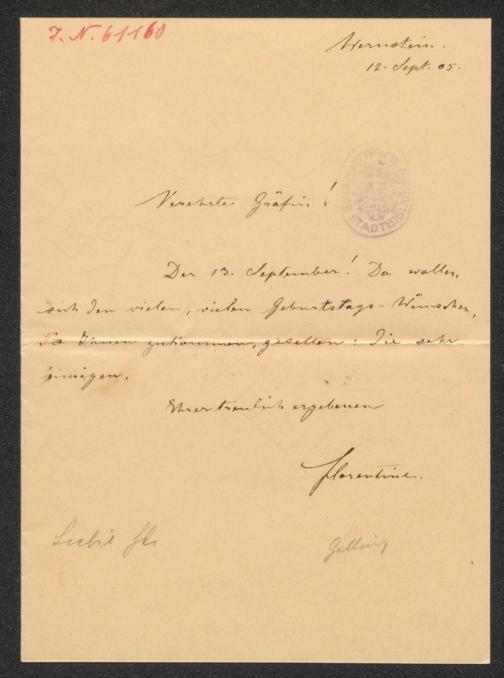 J. N. 61168
Wernstein.
12. Sept. 05.
STADTBIBLIO
Verehrte Gräfin!
Der 13. September! Da wollen
sich den vielen, vielen Geburtstags-Wünschen,
die Ihnen zukommen, gesellen: die sehr
innigen,
Ihrer treulich ergebenen
Florentine.